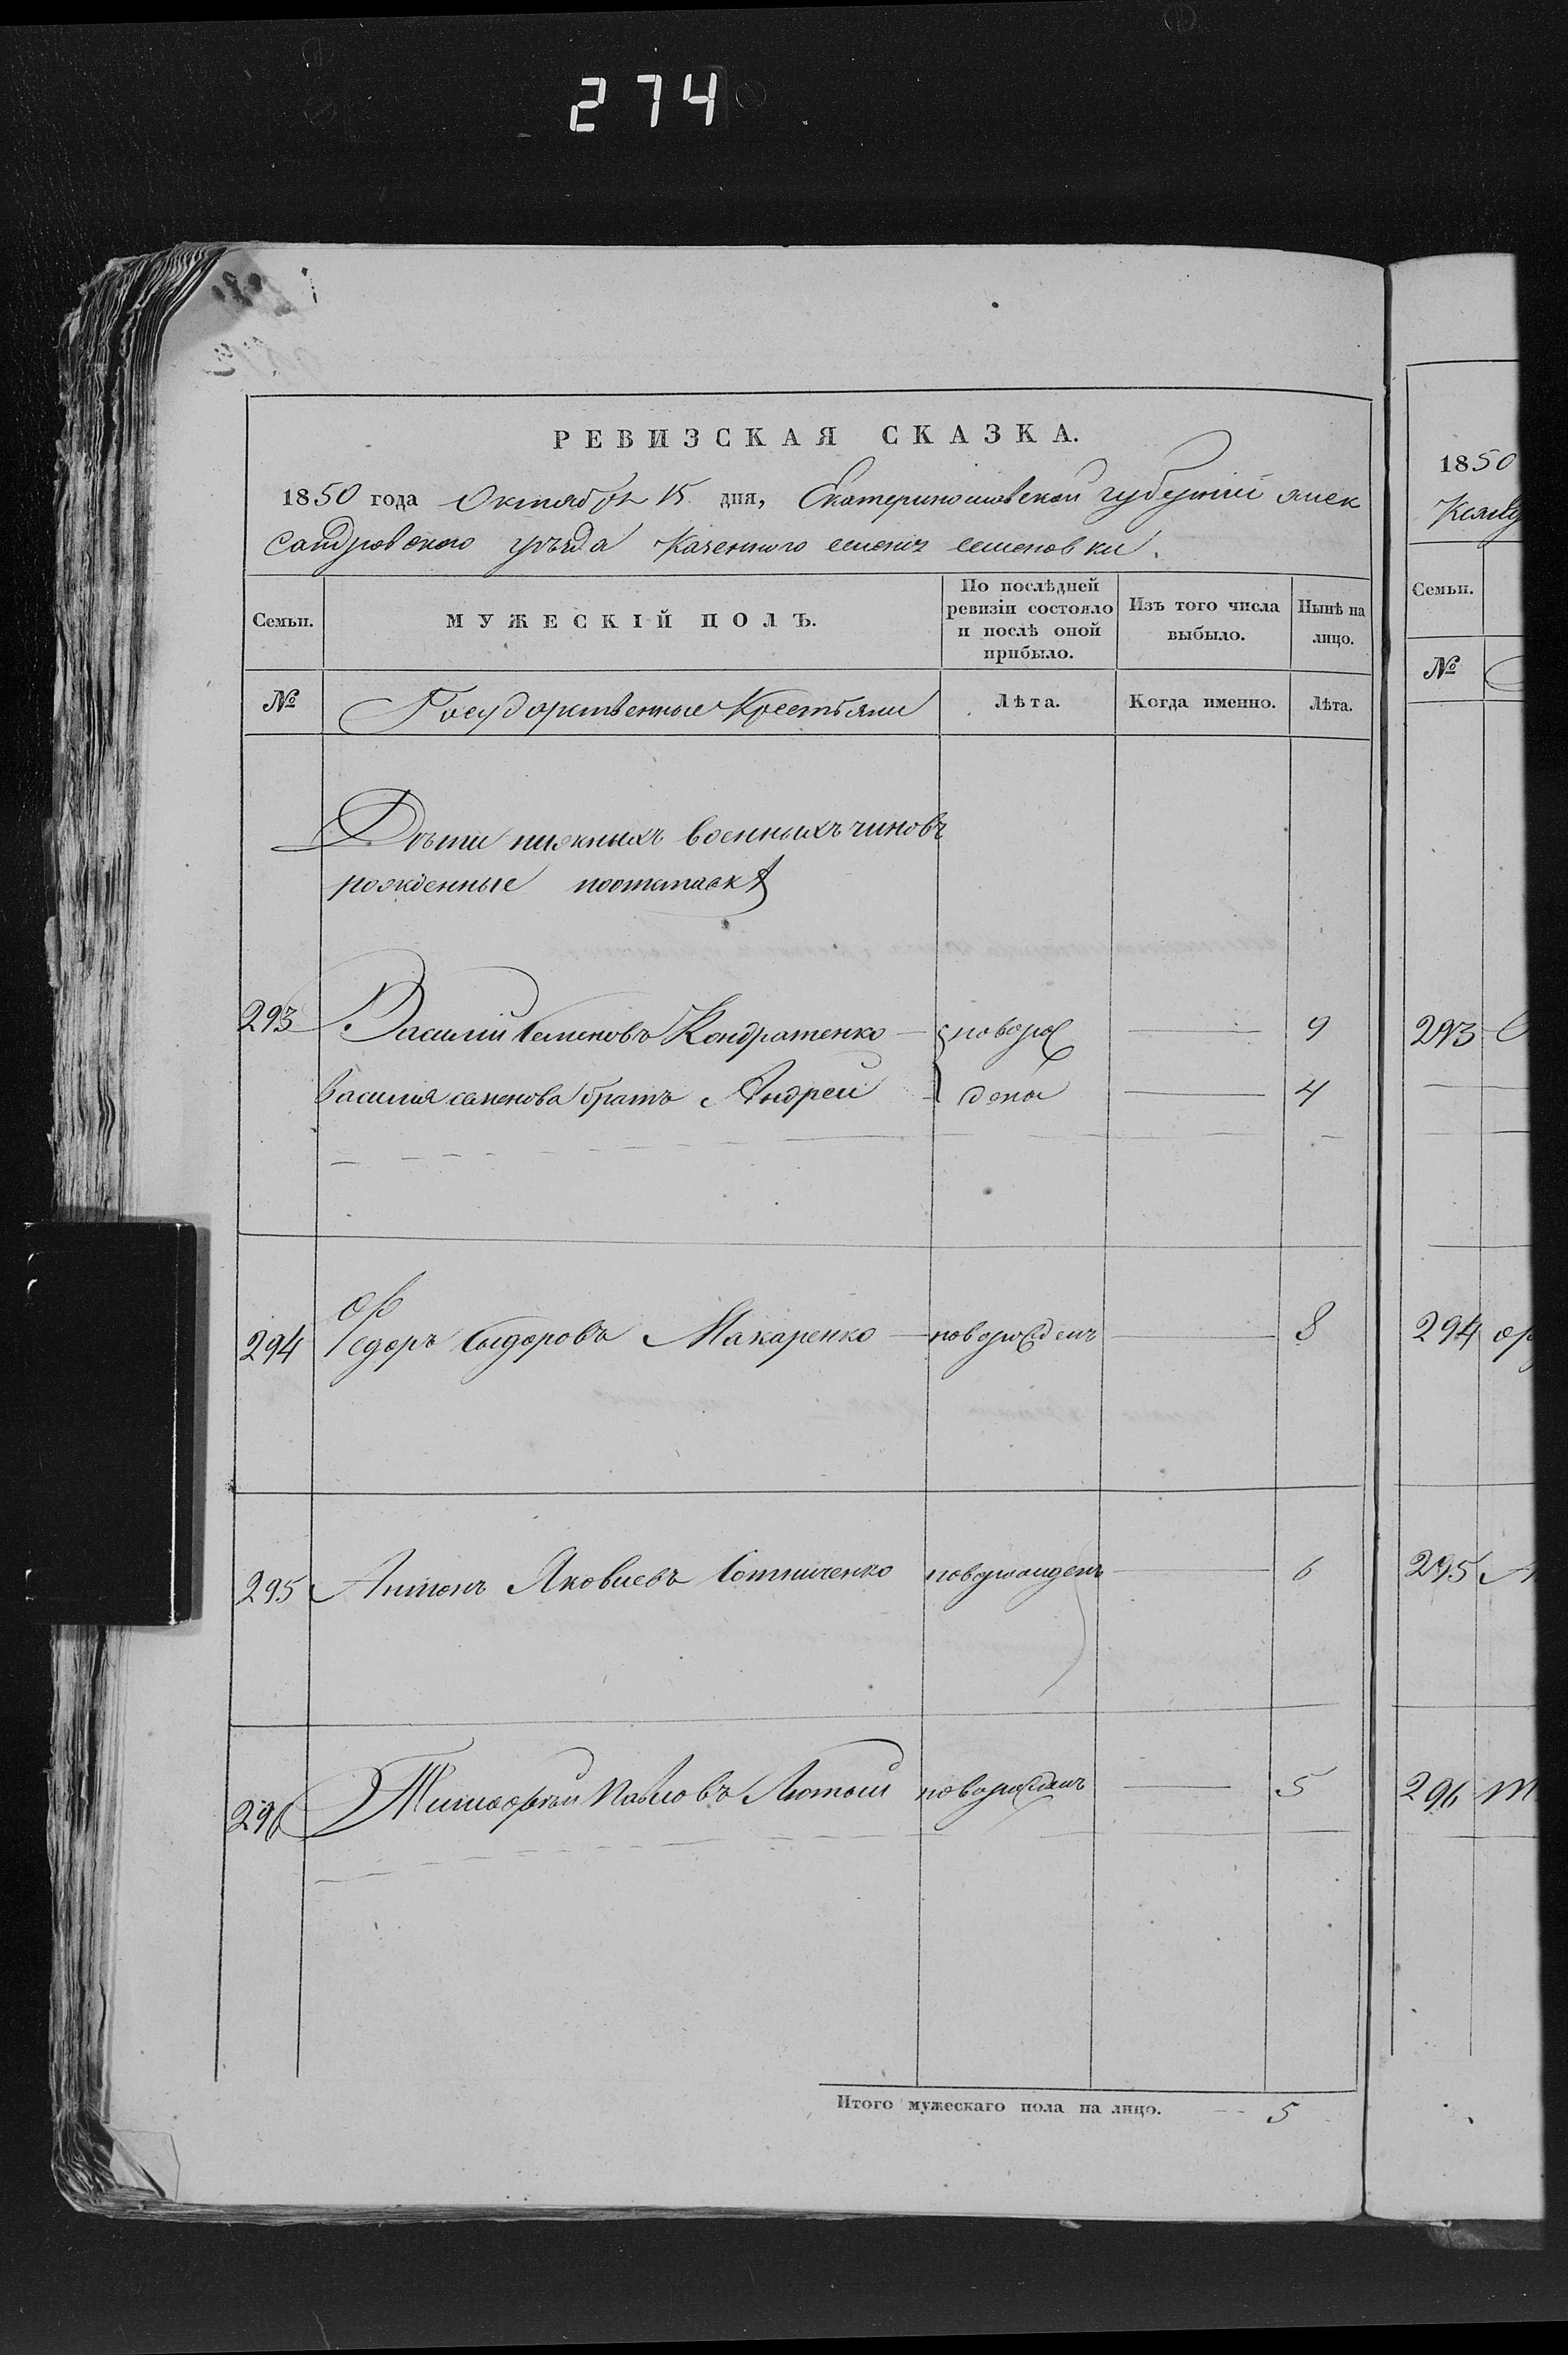 274
РЕВИЗСКАЯ СКАЗКА.
1850 года Октября 15 дня, Екатеринославской губерніи алек
сандровского уѣзда Казенного селенія семеновки.
Семьи.
МУЖЕСКІЙ ПОЛЪ.
По послѣдней ревизіи состояло и послѣ оной прибыло.
Изъ того числа выбыло.
Нынѣ на лицо.
№
Государственные Крестьяне
Лѣта.
Когда именно.
Лѣта.
Дѣти нижныхъ военныхъ чиновъ
рожденные
293 Василий Семеновъ Кондратенко новорож 9
Василия семенова братъ Андреи дены 4
294 Федоръ Сыдоровъ Макаренко новорожденъ 8
295 Антонъ Яковлевъ Сотниченко новорожденъ 6
296 Тимофѣй Павловъ Лютый новорожденъ 5
Итого мужескаго пола на лицо. 5
1850
Семьи.
№
293
294
295
296